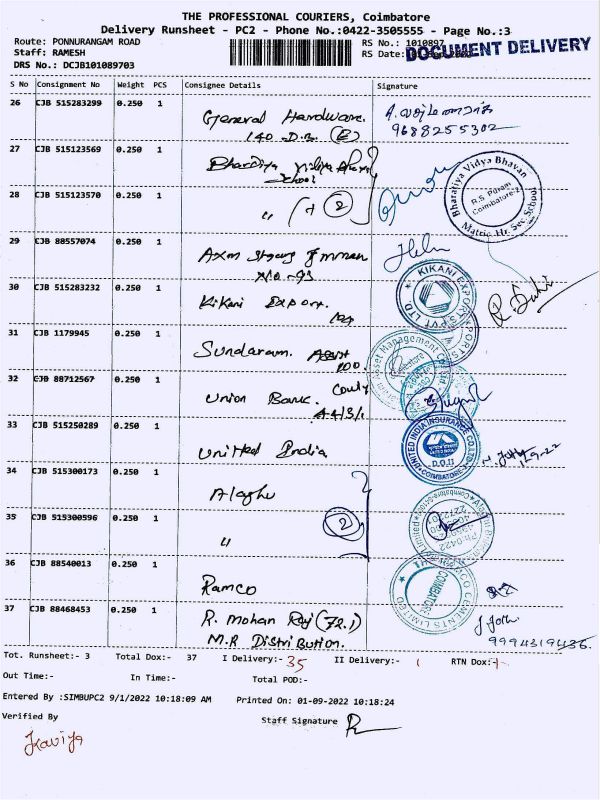 THE PROFESSIONAL COURIERS, Coimbatore
Delivery Runsheet - PC2 - Phone No.:0422-3505555 - Page No.:3
Route: PONNURANGAM ROAD
RS No.: 1010897
Staff: RAMESH
RS Date:
DOCUMENT DELIVERY
DRS No.: DCJB101089703
S No Consignment No Weight PCS Consignee Details Signature
26 CJB 515283299 0.250 1 General Hardware.
140 D.B.
9688255302
27 CJB 515123569 0.250 1 Vidya
School
28 CJB 515123570 0.250 1 " 2
Bharatiya Vidya Bhavan
R.S. Puram
Coimbatore-2
Matric. Hr. Sec. School
29 CJB 88557074 0.250 1 Axm
30 CJB 515283232 0.250 1 Kikani Export.
KIKANI EXPORTS PVT LTD
31 CJB 1179945 0.250 1 Sundaram.
100.
Asset Management
32 CJB 88712567 0.250 1 Union Bank.
33 CJB 515250289 0.250 1 United India
UNITED INDIA INSURANCE CO. LTD
COIMBATORE
1-9-22
34 CJB 515300173 0.250 1 Alaghu
35 CJB 515300596 0.250 1 " 2
36 CJB 88540013 0.250 1 Ramco
CEMENTS LIMITED
COIMBATORE
37 CJB 88468453 0.250 1 R. Mohan Raj (72.1)
M.R Distribution.
9994319436.
Tot. Runsheet:- 3 Total Dox:- 37 I Delivery:- 35 II Delivery:- 1 RTN Dox:- 1
Out Time:- In Time:- Total POD:-
Entered By :SIMBUPC2 9/1/2022 10:18:09 AM Printed On: 01-09-2022 10:18:24
Verified By Staff Signature
Kaviya